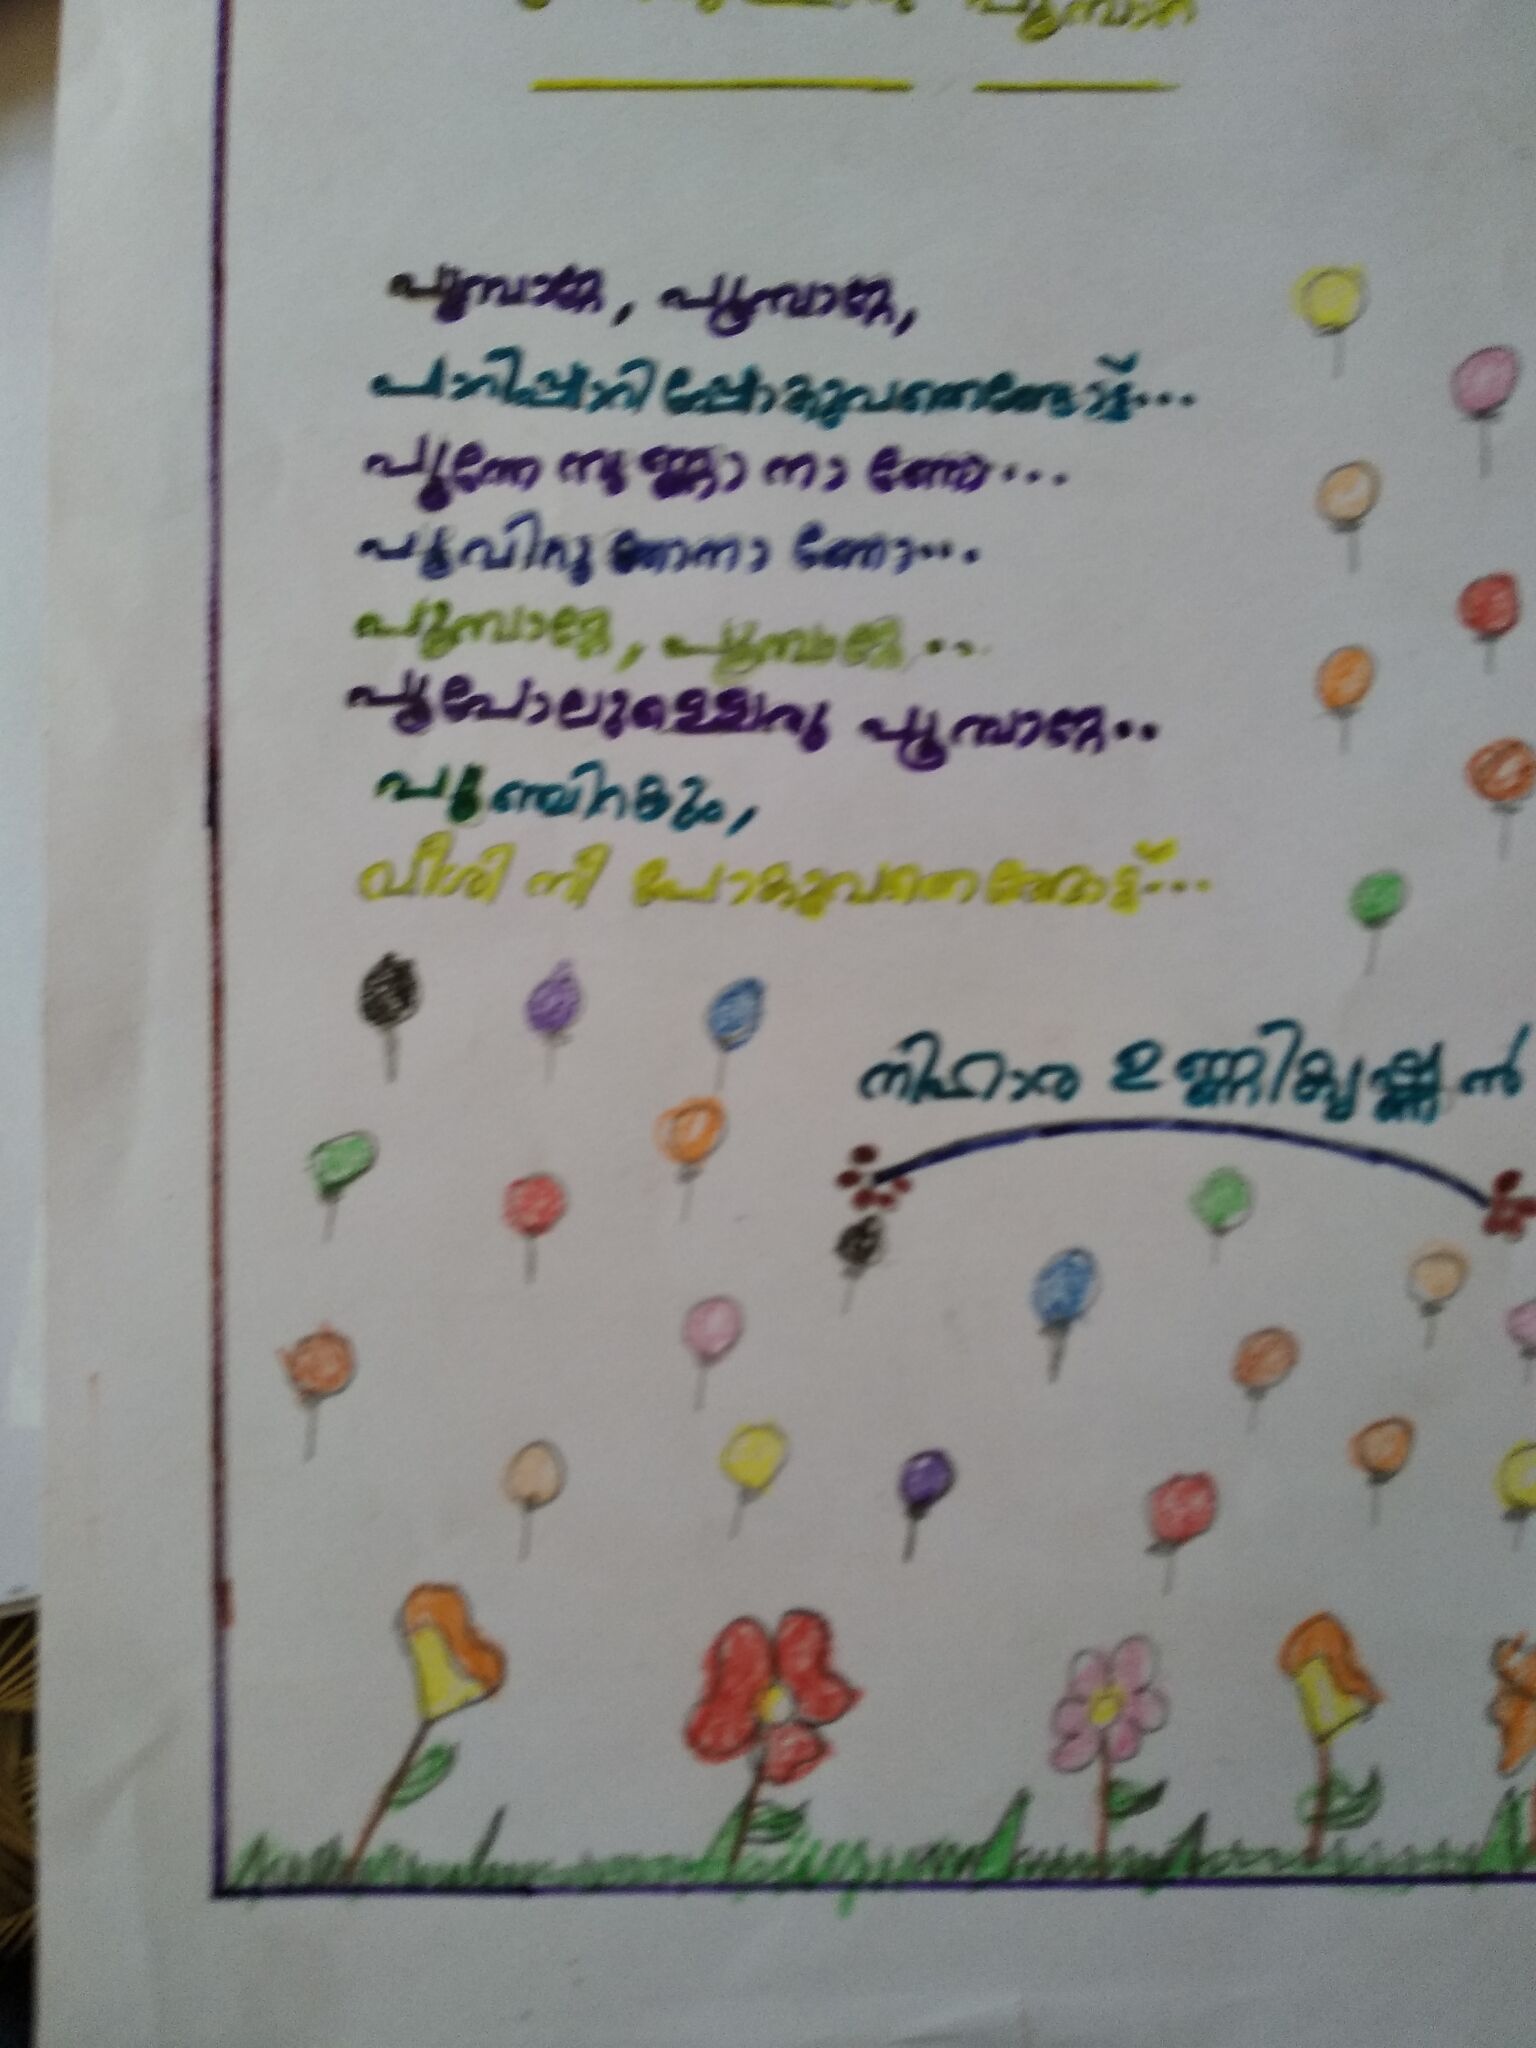 പൂമ്പാറ്റ
പൂമ്പാറ്റേ, പൂമ്പാറ്റേ,
പാറിപ്പാറിപ്പോകുവതെങ്ങോട്ട്...
പൂന്തേനുണ്ണാനാണോ...
പൂവിരുന്നിനാണോ...
പൂമ്പാറ്റേ, പൂമ്പാറ്റേ...
പൂപോലുള്ളൊരു പൂമ്പാറ്റേ..
പൂഞ്ചിറകും,
വീശി നീ പോകുവതെങ്ങോട്ട്...
നിഹാര ഉണ്ണികൃഷ്ണൻ